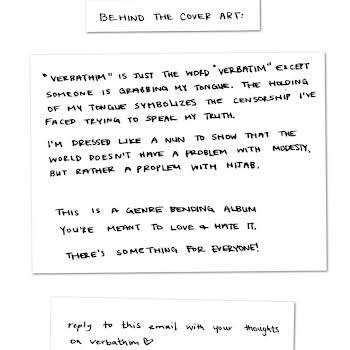 BEHIND THE COVER ART:
"VERBATHIM" IS JUST THE WORD "VERBATIM" EXCEPT
SOMEONE IS GRABBING MY TONGUE. THE HOLDING
OF MY TONGUE SYMBOLIZES THE CENSORSHIP I'VE
FACED TRYING TO SPEAK MY TRUTH.
I'M DRESSED LIKE A NUN TO SHOW THAT THE
WORLD DOESN'T HAVE A PROBLEM WITH MODESTY,
BUT RATHER A PROBLEM WITH HIJAB.
THIS IS A GENRE BENDING ALBUM
YOU'RE MEANT TO LOVE & HATE IT.
THERE'S SOMETHING FOR EVERYONE!
reply to this email with your thoughts
on verbathim ♡